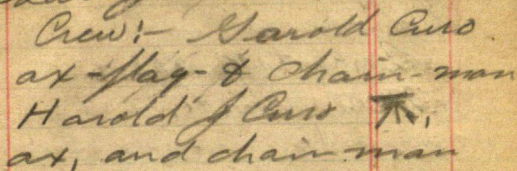 Crew:- Garold Curo
ax-flag-& chain-man
Harold J Curo
ax, and chain man